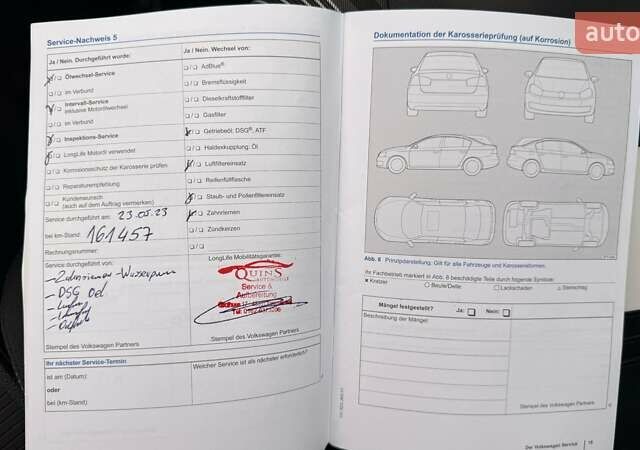 Service-Nachweis 5
Ja / Nein. Durchgeführt wurde:
Ölwechsel-Service
im Verbund
Intervall-Service
inklusive Motorölwechsel
im Verbund
Inspektions-Service
LongLife Motoröl verwendet
Korrosionsschutz der Karosserie prüfen
Reparaturempfehlung
Kundenwunsch
(auch auf dem Auftrag vermerken)
Service durchgeführt am: 23.05.23
bei km-Stand: 161457
Rechnungsnummer:
Service durchgeführt von:
- DSG Oel
Stempel des Volkswagen Partners
Ja / Nein. Wechsel von:
AdBlue®
Bremsflüssigkeit
Dieselkraftstofffilter
Gasfilter
Getriebeöl: DSG®, ATF
Haldexkupplung: Öl
Luftfiltereinsatz
Reifenfüllflasche
Staub- und Pollenfiltereinsatz
Zahnriemen
Zündkerzen
LongLife Mobilitätsgarantie:
QUINS
AUTOMOBILE
Service &
Aufbereitung
Stempel des Volkswagen Partners
Ihr nächster Service-Termin
ist am (Datum):
oder
bei (km-Stand):
Welcher Service ist als nächster erforderlich?
Dokumentation der Karosserieprüfung (auf Korrosion)
auto
Abb. 6 Prinzipdarstellung: Gilt für alle Fahrzeuge und Karosserieformen.
Ihr Fachbetrieb markiert in Abb. 6 beschädigte Teile durch folgende Symbole:
× Kratzer ○ Beule/Delle □ Lackschaden △ Steinschlag
Mängel festgestellt? Ja: Nein:
Beschreibung der Mängel:
Stempel des Volkswagen Partners
Der Volkswagen Service